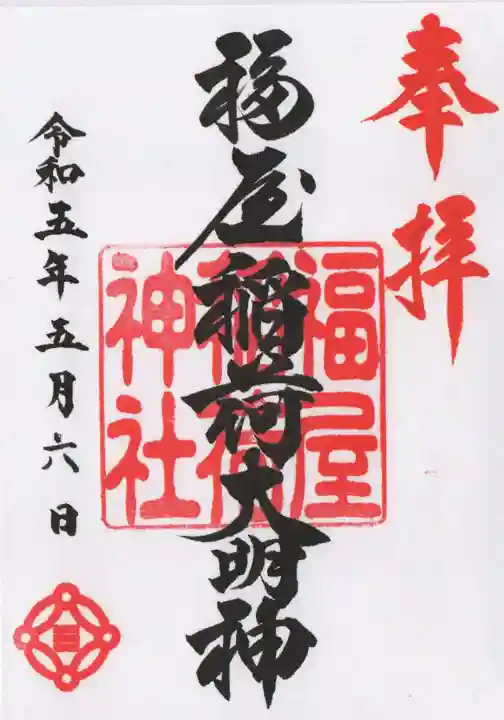 奉拝
福屋稲荷大明神
福屋
稲荷
神社
令和五年五月六日